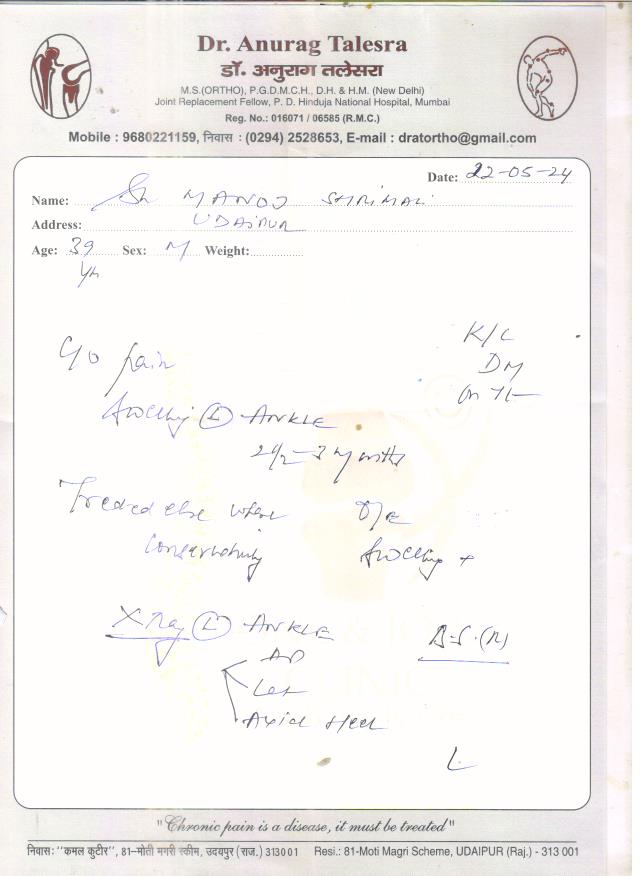 Dr. Anurag Talesra
डॉ. अनुराग तलेसरा
M.S.(ORTHO), P.G.D.M.C.H., D.H. & H.M. (New Delhi)
Joint Replacement Fellow, P. D. Hinduja National Hospital, Mumbai
Reg. No.: 016071 / 06585 (R.M.C.)
Mobile : 9680221159, निवास : (0294) 2528653, E-mail : dratortho@gmail.com
Date: 22-05-24
Name: Sh MANOJ SHRIMALI
Address: UDAIPUR
Age: 39 Sex: M Weight:
Yrs
K/C
C/o pain
DM
on
Swelling (L) ANKLE
2 1/2 - 3 months
Treated else where
conservatively
O/E
Swelling +
X Ray (L) ANKLE
AP
Lat
Axial Heel
B.S. (R)
L
& 
CLINIC
"Chronic pain is a disease, it must be treated"
निवास: "कमल कुटीर", 81-मोती मगरी स्कीम, उदयपुर (राज.) 313001 Resi.: 81-Moti Magri Scheme, UDAIPUR (Raj.) - 313 001